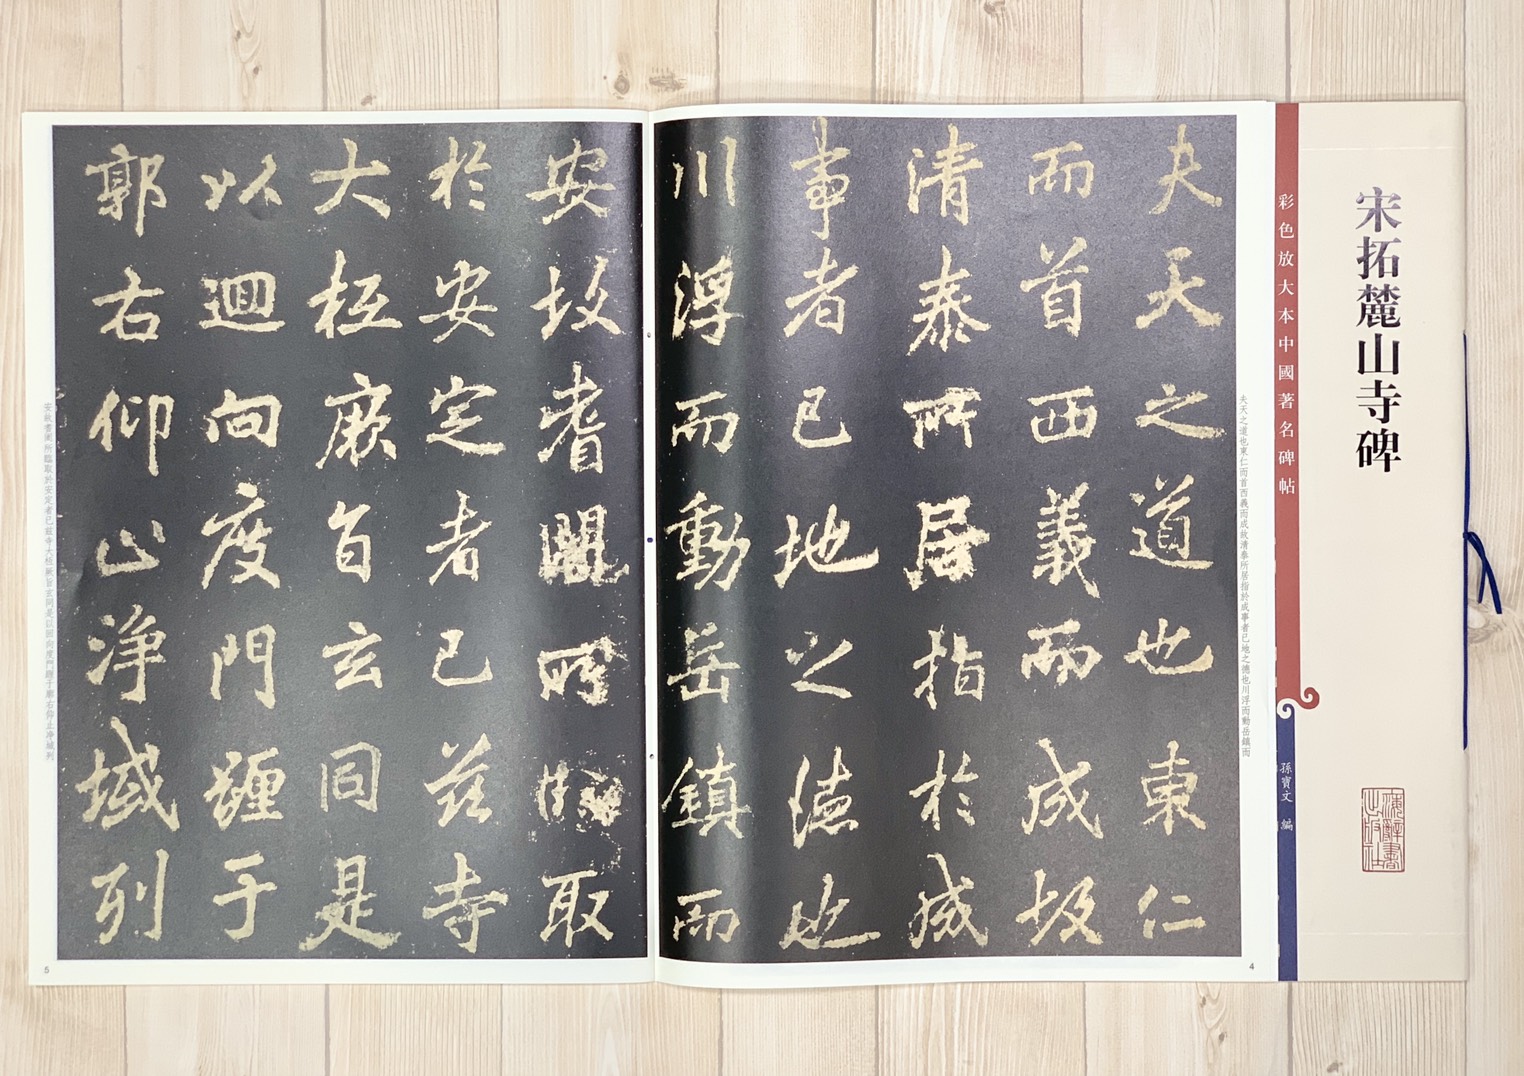 宋拓麓山寺碑
彩色放大本中國著名碑帖
孫寶文 編
上海辭書
出版社
夫天之道也東仁而首西義而成故清泰所居指於成事者已地之德也川浮而動岳鎮而
夫天之道也東仁
而首西義而成故
清泰所居指於成
事者已地之德也
川浮而動岳鎮而
4
安故耆闍所臨取
於安定者已茲寺
大極厥旨玄同是
以迴向度門躔于
郭右仰止淨域列
安故耆闍所臨取於安定者已茲寺大極厥旨玄同是以回向度門躔于郭右仰止淨域列
5